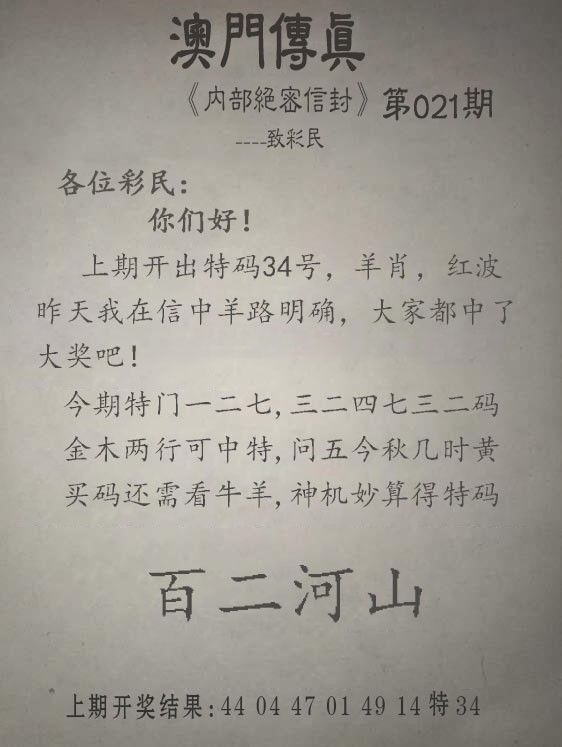 澳門傳眞
《内部絕密信封》第021期
----致彩民
各位彩民：
你们好！
上期开出特码34号，羊肖，红波
昨天我在信中羊路明确，大家都中了
大奖吧！
今期特门一二七,三二四七三二码
金木两行可中特,问五今秋几时黄
买码还需看牛羊,神机妙算得特码
百二河山
上期开奖结果:44 04 47 01 49 14 特 34